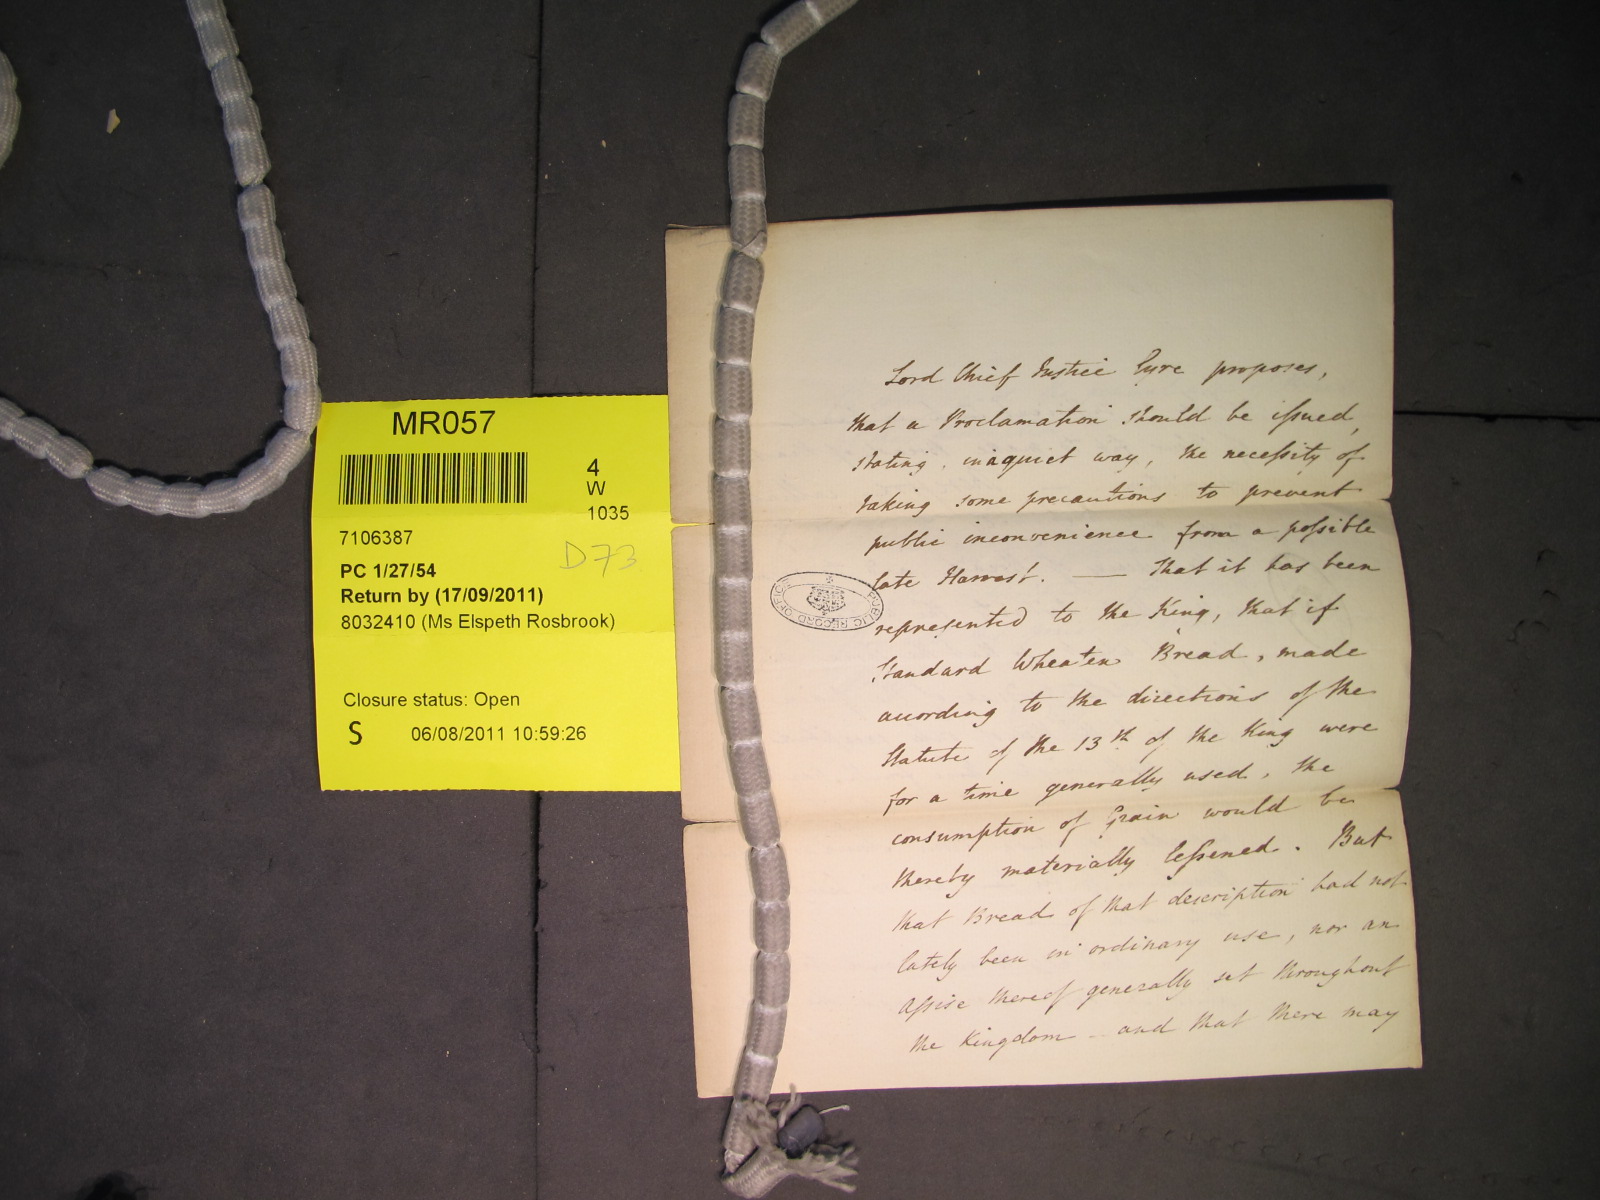 MR057
4
W
1035
7106387
D73
PC 1/27/54
Return by (17/09/2011)
8032410 (Ms Elspeth Rosbrook)
Closure status: Open
S 06/08/2011 10:59:26
PUBLIC RECORD OFFICE
Lord Chief Justice Eyre proposes,
that a Proclamation should be issued,
stating, in a quiet way, the necessity of
taking some precautions to prevent
public inconvenience from a possible
late Harvest. — That it has been
represented to the King, that if
Standard Wheaten Bread, made
according to the directions of the
Statute of the 13th of the King were
for a time generally used, the
consumption of Grain would be
thereby materially lessened. But
that Bread of that description had not
lately been in ordinary use, nor an
Assise thereof generally set throughout
the Kingdom — and that there may